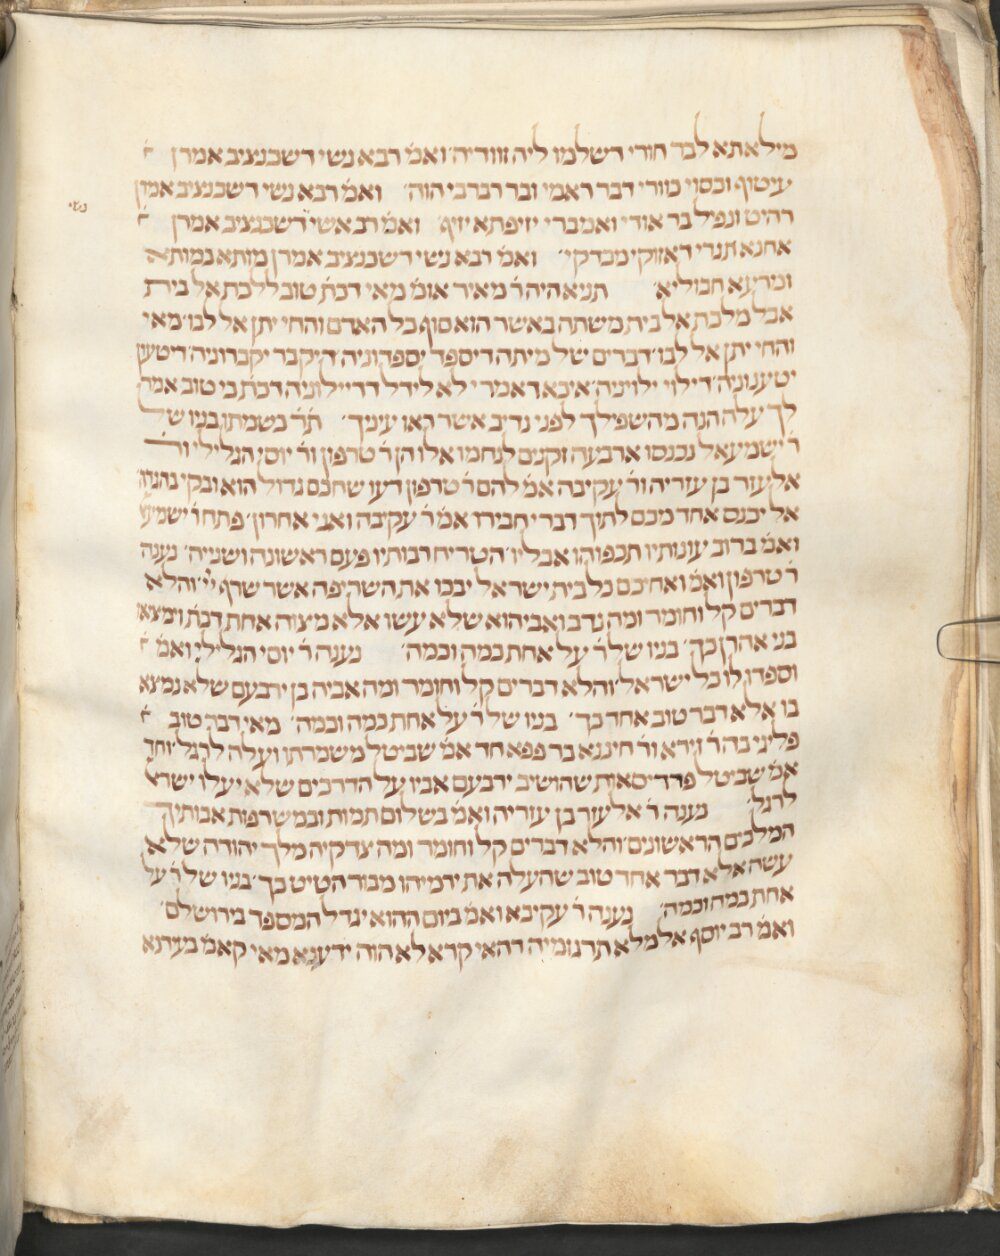 מילאתא לבר חורי דשלמו ליה זוודיה׳ ואמ׳ רבא נשי דשכנציב אמרן
עיטוף וכסוי כוורי דבר ראמי ובר רברבי הוה׳ ואמ׳ רבא נשי דשכנציב אמרן
רהיט ונפיל בר אודי ואמברי יזיפתא יזיף ואמ׳ רב אשי דשכנציב אמרן
נשי
אחנא תגרי דאזוקי מבדקי׳ ואמ׳ רבא נשי דשכנציב אמרן מותא כמותא
ומרעא חבוליא׳ תניא היה ר׳ מאיר אומ׳ מאי דכת׳ טוב ללכת אל בית
אבל מלכת אל בית משתה באשר הוא סוף כל האדם והחי יתן אל לבו׳ מאי
והחי יתן אל לבו׳ דברים של מיתה דיספד יספדוניה דיקבר יקברוניה׳ דיטען
יטענוניה׳ דילוי ילויניה׳ איכא דאמרי לא לידל דדיילוניה דכת׳ כי טוב אמר
לך עלה הנה מהשפילך לפני נדיב אשר ראו עיניך׳ ת׳ר׳ כשמתו בניו של
ר׳ ישמעאל נכנסו ארבעה זקנים לנחמו אלו הן ר׳ טרפון ור׳ יוסי הגלילי ור׳
אלעזר בן עזריה ור׳ עקיבה אמ׳ להם ר׳ טרפון דעו שחכם גדול הוא ובקי בהגדה
אל יכנס אחד מכם לתוך דברי חבירו אמ׳ ר׳ עקיבה ואני אחרון׳ פתח ר׳ ישמע׳
ואמ׳ ברוב עונותיו תכפוהו אבליו׳ הטריח רבותיו פעם ראשונה ושנייה׳ נענה
ר׳ טרפון ואמ׳ ואחיכם כל בית ישראל יבכו את השריפה אשר שרף יי׳ והלא
דברים קל וחומר ומה נדב ואביהוא שלא עשו אלא מצוה אחת דכת׳ וימצאו
בני אהרן כך׳ בניו של ר׳ על אחת כמה וכמה׳ נענה ר׳ יוסי הגלילי ואמ׳
וספדו לו כל ישראל׳ והלא דברים קל וחומר ומה אביה בן ירבעם שלא נמצא
בו אלא דבר טוב אחד כך׳ בניו של ר׳ על אחת כמה וכמה׳ מאי דבר טוב
פליגי בה ר׳ זירא ור׳ חיננא בר פפא חד אמ׳ שביטל משמרתו ועלה לרגל׳ וחד
אמ׳ שביטל פרדיסאות שהושיב ירבעם אביו על הדרכים שלא יעלו ישרא׳
לרגל׳ נענה ר׳ אלעזר בן עזריה ואמ׳ בשלום תמות ובמשרפות אבותיך
המלכים הראשונים׳ והלא דברים קל וחומר ומה צדקיה מלך יהודה שלא
עשה אלא דבר אחד טוב שהעלה את ירמיהו מבור הטיט כך׳ בניו של ר׳ על
אחת כמה וכמה׳ נענה ר׳ עקיבא ואמ׳ ביום ההוא יגדל המספד בירושלם׳
ואמ׳ רב יוסף אלמלא תרגומיה דהאי קרא לא הוה ידענא מאי קאמ׳ בעידנא